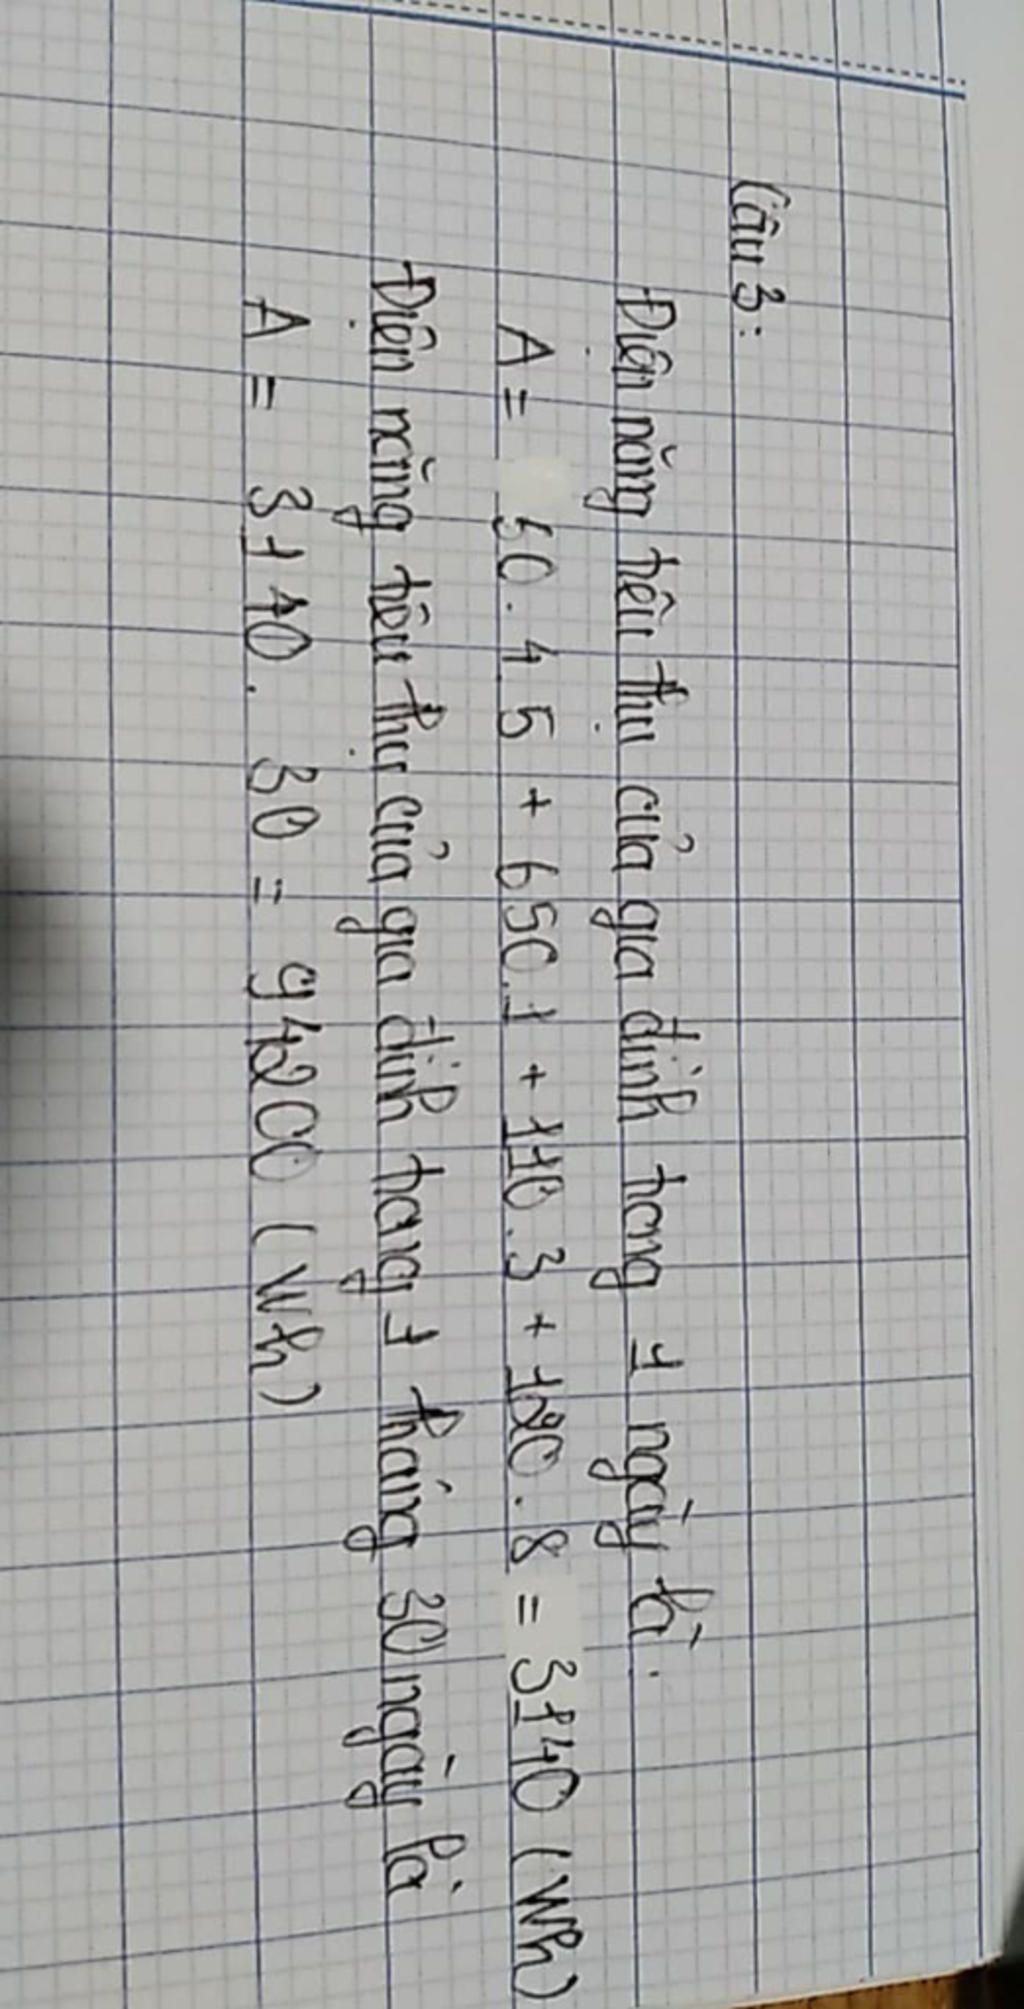 Câu 3:
Điện năng tiêu thụ của gia đình trong 1 ngày là:
A = 60.4.5 + 650.1 + 110.3 + 120.8 = 3140 (Wh)
Điện năng tiêu thụ của gia đình trong 1 tháng 30 ngày là
A = 3140. 30 = 94200 (Wh)